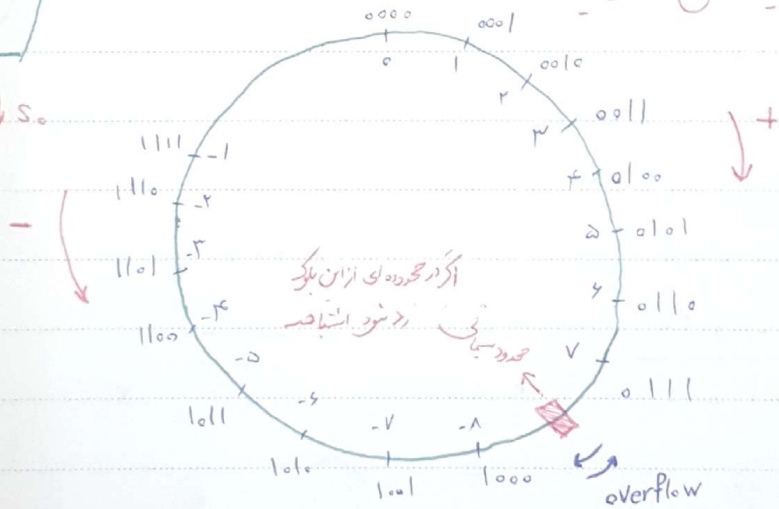 0000
0001
0010
0011
0100
0101
0110
0111
1000
1001
1010
1011
1100
1101
1110
1111
۰
۱
۲
۳
۴
۵
۶
۷
-۸
-۷
-۶
-۵
-۴
-۳
-۲
-۱
+
-
S₀
اگر در محدوده ای از این بلوک
رد شود اشتباهه
overflow